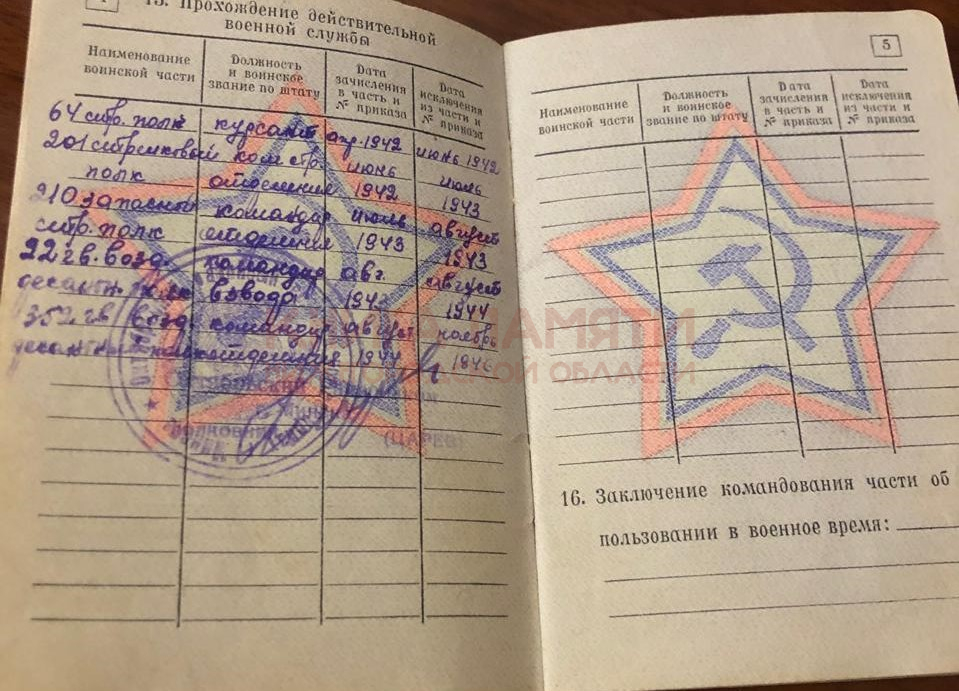 4
15. Прохождение действительной
военной службы
Наименование воинской части
Должность и воинское звание по штату
Дата зачисления в часть и № приказа
Дата исключения из части и № приказа
64 стр. полк курсант апр. 1942 июнь 1942
201 стрелковый ком стр. июнь июль
полк отделения 1942 1943
210 запасной командир июль август
стр. полк отделения 1943 1943
22 гв. возд. командир авг. август
десантн взвода 1943 1944
352 гв возд командир август ноябрь
десантн отделения 1944 1946
ПАМЯТИ
ОБЛАСТИ
5
Наименование воинской части
Должность и воинское звание по штату
Дата зачисления в часть и № приказа
Дата исключения из части и № приказа
16. Заключение командования части об
пользовании в военное время:
(ЦАРЕВ)